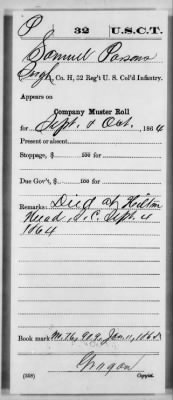 P 32 U.S.C.T.
Samuel Parsons
Sergt, Co. H, 32 Reg't U. S. Col'd Infantry.
Appears on
Company Muster Roll
for Sept. & Oct., 1864
Present or absent
Stoppage, $ 100 for
Due Gov't, $ 100 for
Remarks: Died at Hilton
Head, S.C. Sept. 4
1864
Book mark: Jan. 11, 1865
(358) Gragan Copyist.